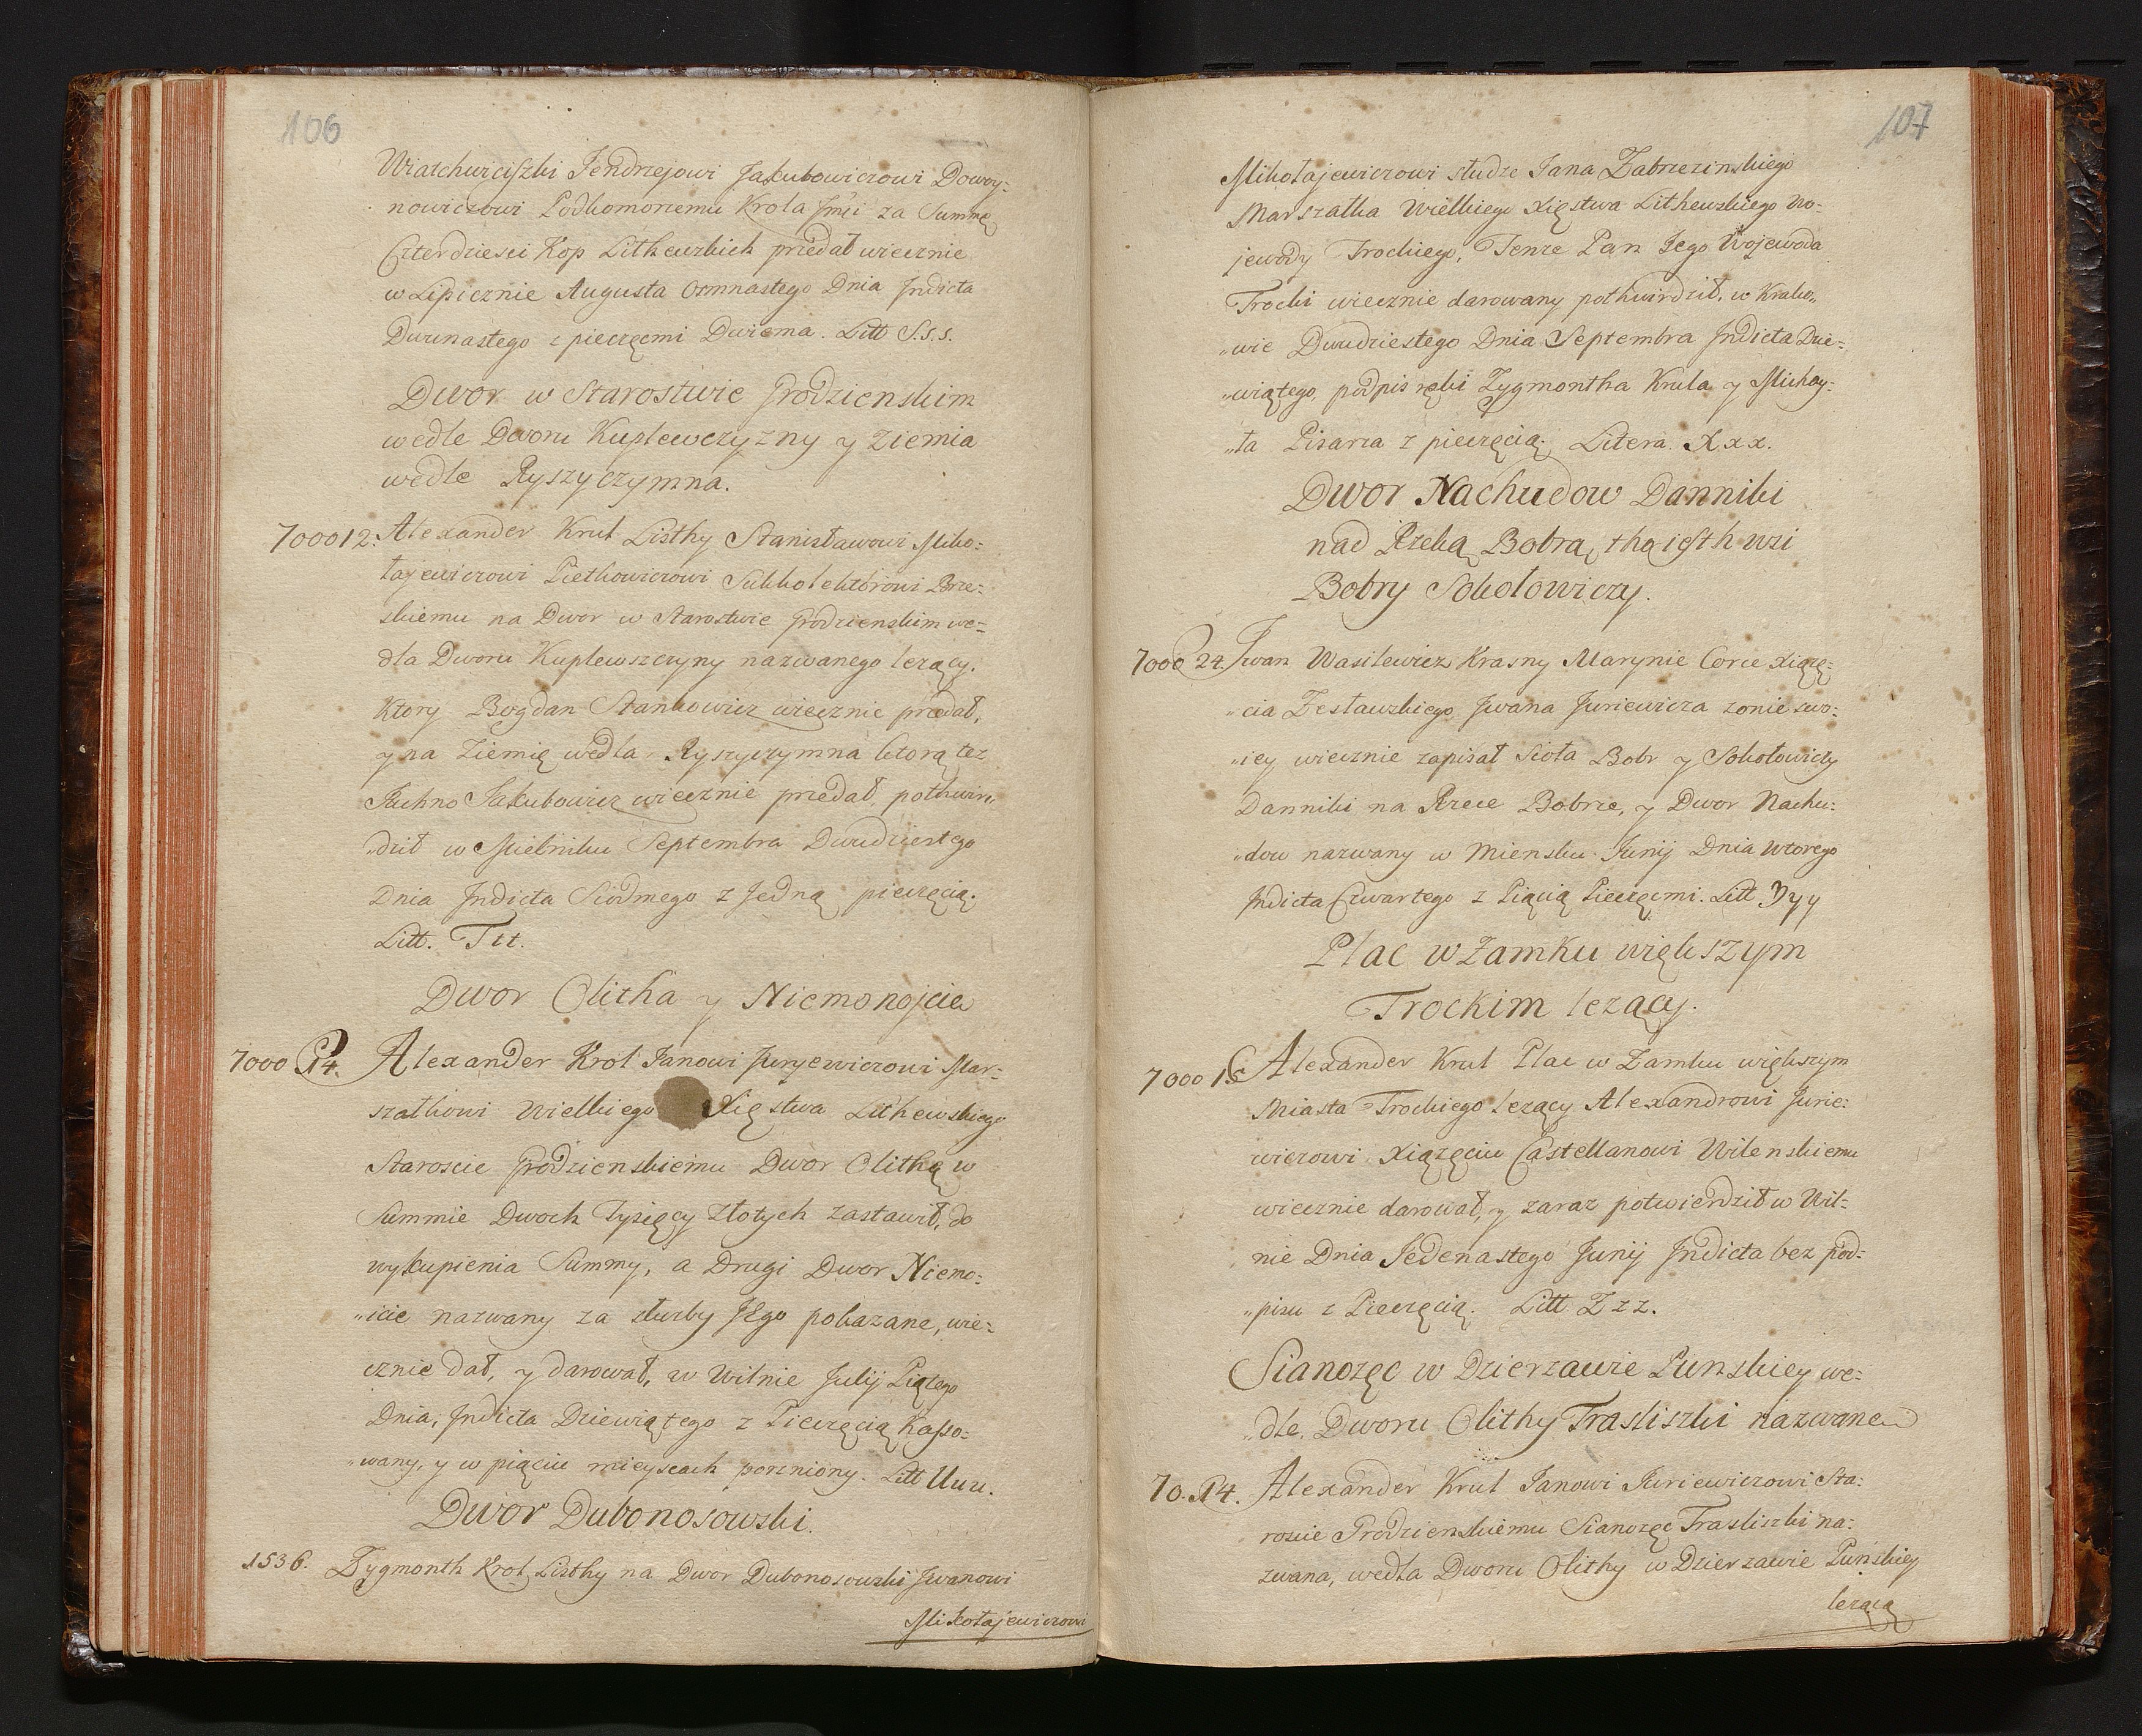 106
Wiatchwiciszki Jendrzejowi Jakubowiczowi Dowoy=
nowiczowi Podkomorzemu Krola Jmci za Summę
Czterdziesci Kop Lithewskich przedał wiecznie
w Lipicznie Augusta Osmnastego Dnia Indicta
Dwunastego z pieczęcmi Dwiema. Litt S.s.s.
Dwor w Starostwie Grodzienskim
wedle Dworu Kuplewczyzny y Ziemia
wedle Ryszyczymna.
700012. Alexander Krul Listhy Stanisławowi Miko=
łajewiczowi Piethowiczowi Sukkolektorowi Brze=
skiemu na Dwor w Starostwie Grodzienskim we=
dla Dworu Kuplewszczyny nazwanego lezący.
Ktory Bogdan Stankowicz wiecznie przedał,
y na Ziemię wedla Ryszyczymna ktorą tez
Juchno Jakubowicz wiecznie przedał, pothwir„
„dził w Mielniku Septembra Dwudziestego
Dnia Indicta Siodmego z Jedną pieczęcią.
Litt. Ttt.
Dwor Olitha y Niemonojcie
7000 14. Alexander Krol Janowi Juryewiczowi Mar=
szałkowi Wielkiego Xięstwa Lithewskiego
Staroscie Grodzienskiemu Dwor Olithę w
Summie Dwoch Tysięcy Złotych zastawił, do
wykupienia Summy, a Drugi Dwor Niemo=
„icie nazwany za służby Jego pokazane, wie=
cznie dał, y darował, w Wilnie Julij Piątego
Dnia, Indicta Dziewiątego z Pieczęcią Kasso=
„wany, y w piąciu mieyscach porzniony. Litt Uuu.
Dwor Dubonosowski.
1536. Zygmonth Krol Listhy na Dwor Dubonosowski Iwanowi
Mikołajewiczowi
107
Mikołajewiczowi słudze Jana Zabrzezinskiego
Marszałka Wielkiego Xięstwa Lithewskiego Wo=
jewody Trockiego, Tenze Pan Jego Wojewoda
Trocki wiecznie darowany pothwirdził, w Krako„
„wie Dwudziestego Dnia Septembra Indicta Dzie=
„wiątego, podpis ręki Zygmontha Krula y Michay=
„ła Pisarza z pieczęcią. Litera. Xxx.
Dwor Nachudow Danniki
nad Rzeką Bobrą, thą iesth wsi
Bobry Sokołowiczy.
7000 24. Iwan Wasilewicz Krasny Marynie Corce Xiążę=
„cia Zesławskiego Iwana Juriewicza zonie swo=
„iey wiecznie zapisał Sioła Bobr y Sokołowiczy
Danniki na Rzece Bobrze, y Dwor Nachu=
„dow nazwany w Miensku Junij Dnia Wtorego
Indicta Czwartego z Piącią Pieczęcmi. Litt Yyy
Plac w Zamku większym
Trockim lezący.
7000 15 Alexander Krul Plac w Zamku większym
Miasta Trockiego lezący Alexandrowi Jurie=
wiczowi Xiązęciu Castellanowi Wilenskiemu
wiecznie darował, y zaraz potwierdził w Wil=
nie Dnia Jedenastego Junij Indicta bez pod=
„pisu z Pieczęcią. Litt Zzz.
Sianożęc w Dzierzawie Punskiey we=
„dle Dworu Olithy Trasliszki nazwane
70. 14. Alexander Krul Janowi Juriewiczowi Sta=
roscie Grodzienskiemu Sianozęc Trasliszki na=
zwana, wedla Dworu Olithy w Dzierzawie Punskiey
lezącą